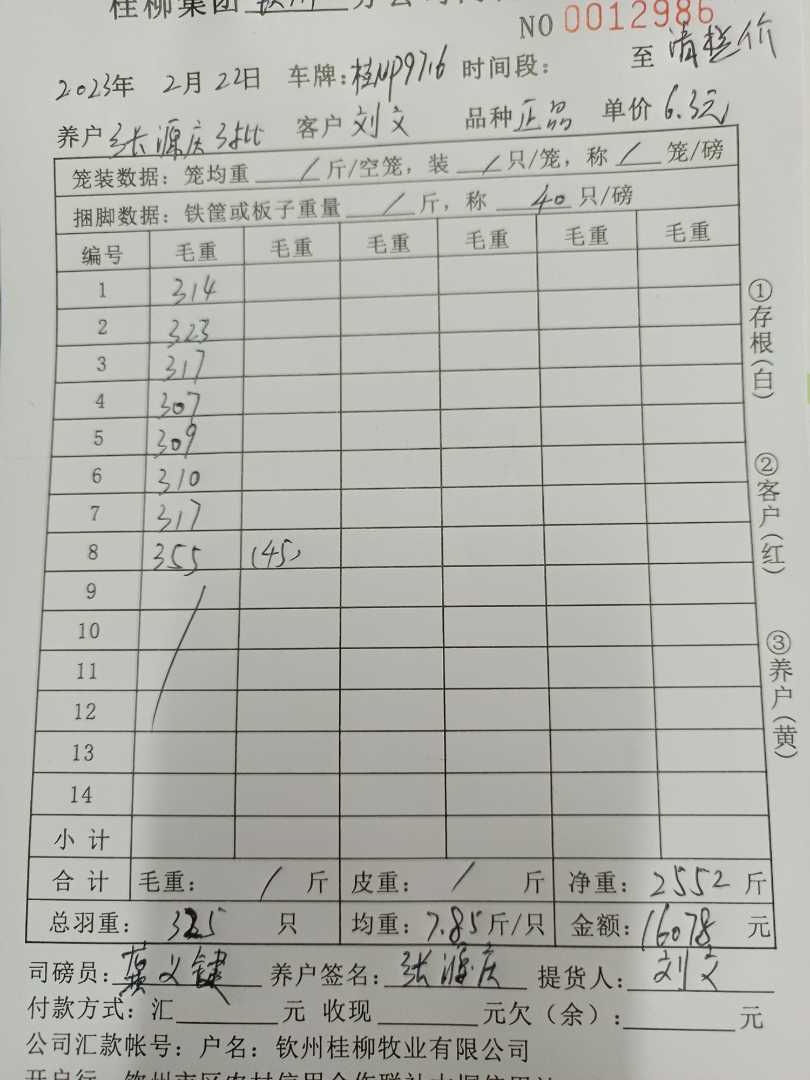 桂柳集团 钦州 分公司
NO 0012986
2023年 2月 22日 车牌:桂NP9716 时间段: 至 清栏价
养户 张源庆3批 客户 刘文 品种 正品 单价 6.3元
笼装数据:笼均重 / 斤/空笼,装 / 只/笼,称 / 笼/磅
捆脚数据:铁筐或板子重量 / 斤,称 40 只/磅
编号 毛重 毛重 毛重 毛重 毛重 毛重
1 314
2 323
3 317
4 307
5 309
6 310
7 317
8 355 (45)
9
10
11
12
13
14
小计
合计 毛重: / 斤 皮重: / 斤 净重: 2552 斤
总羽重: 325 只 均重: 7.85 斤/只 金额: 16078 元
司磅员: 养户签名: 张源庆 提货人: 刘文
付款方式:汇 元 收现 元欠(余): 元
公司汇款帐号:户名:钦州桂柳牧业有限公司
①存根(白)
②客户(红)
③养户(黄)